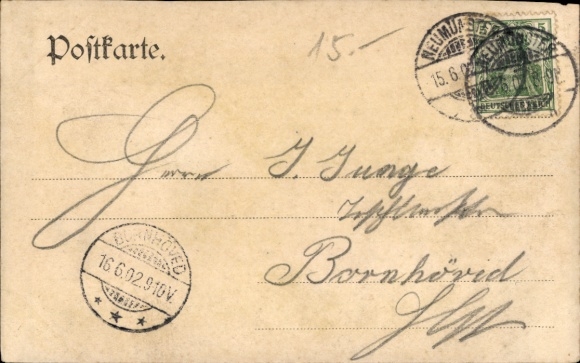 Postkarte.
15.-
5
NEUMÜNSTER
15.6.02
NEUMÜNSTER
DEUTSCHES REICH
Herrn J. Junge
Bornhöved
Holst
BORNHÖVED
16.6.02.9-10V.